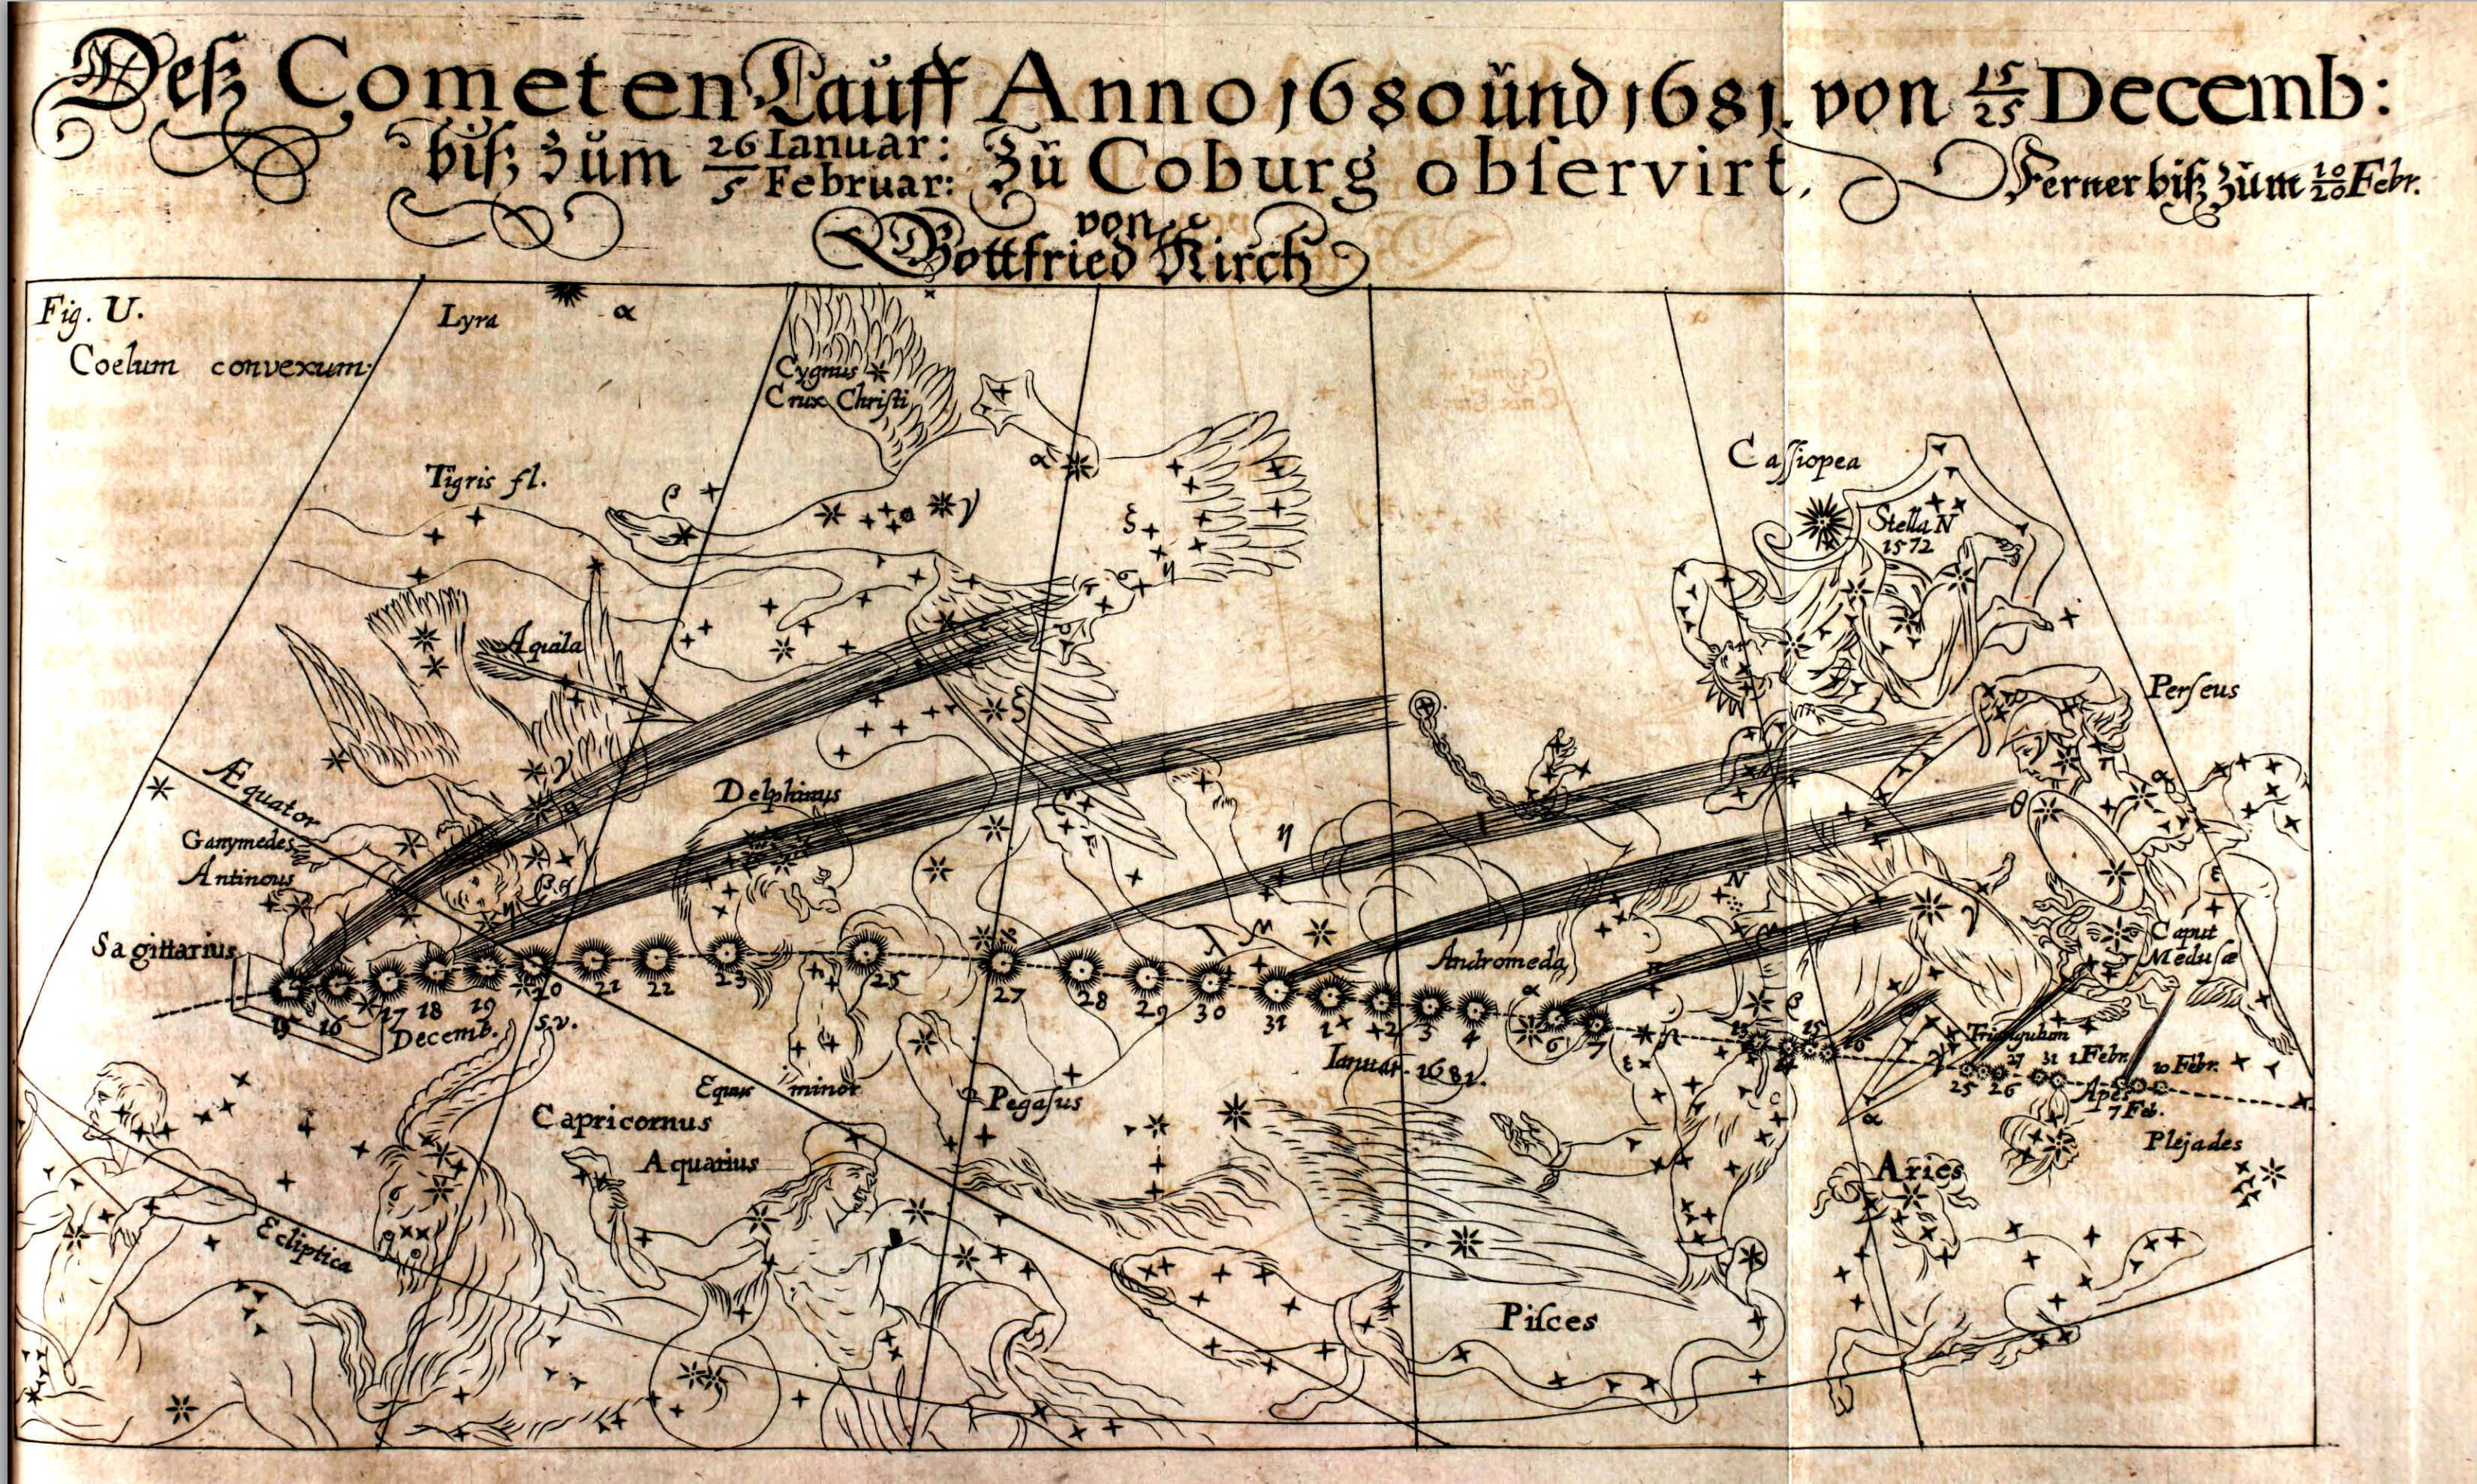 Deß Cometen Lauff Anno 1680 ŭnd 1681. von 15/25 Decemb:
biß zŭm 26/5 Ianuar: Februar: Zŭ Coburg obſervirt, Ferner biß zŭm 10/20 Febr.
von
Gottfried Kirch
Fig. U.
Lyra
α
Coelum convexum.
Cygnus
Crux Chriſti
Caſſiopea
α
Tigris fl.
β
γ
ξ
Stella N
1572
η
Aquila
Perſeus
ξ
Æquator
γ
Delphinus
α
θ
Ganymedes
Antinous
η
N
ε
γ
Caput
Meduſæ
Sagittarius
Andromeda
15 16 17 18 19 20 21 22 23 25 27 28 29 30 31 1 2 3 4 6 7 13 15
Decemb.
s.v.
α
β
Triangulum
27 31 1 Febr.
10 Febr.
Ianuar. 1681.
ε
25 26
Apes
7 Feb.
Equus minor
Pegaſus
α
Capricornus
Plejades
Aquarius
Aries
Ecliptica
Piſces